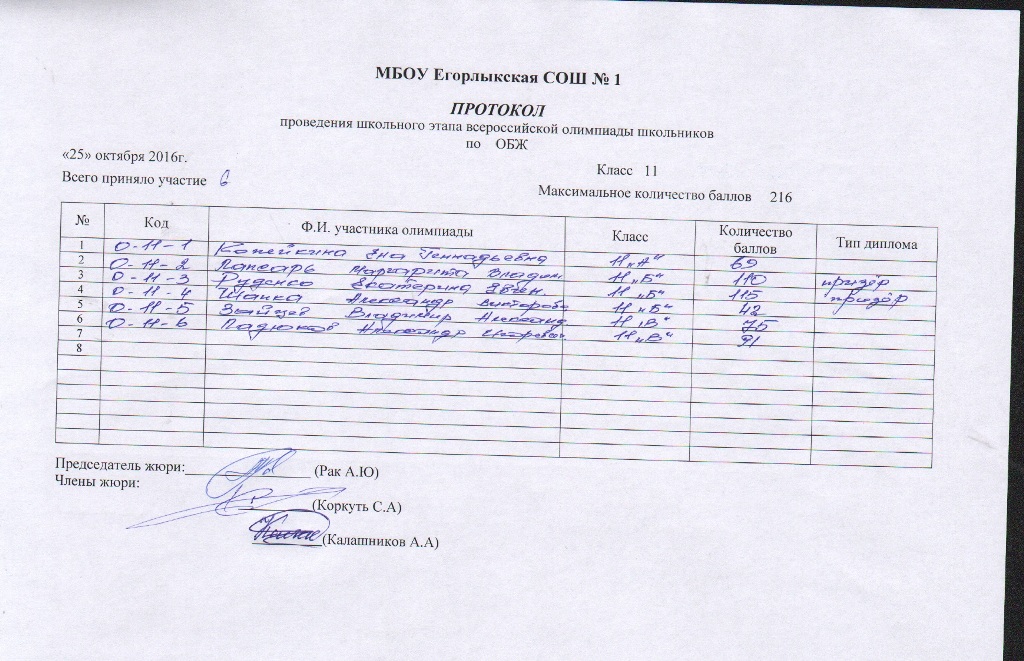 МБОУ Егорлыкская СОШ № 1
ПРОТОКОЛ
проведения школьного этапа всероссийской олимпиады школьников
по ОБЖ
«25» октября 2016г.
Класс 11
Всего приняло участие 6
Максимальное количество баллов 216
№ Код Ф.И. участника олимпиады Класс Количество баллов Тип диплома
1 О-11-1 Копейкина Яна Геннадьевна 11 „А“ 69
2 О-11-2 Маргарита Владим 11 „Б“ 110 призёр
3 О-11-3 Руденко Екатерина Евген. 11 „Б“ 115 призёр
4 О-11-4 Шапка Александр Викторов 11 „Б“ 42
5 О-11-5 Зайцев Владимир Александ 11 „В“ 75
6 О-11-6 Падюков Александр Игореви 11 „В“ 91
7
8
Председатель жюри: (Рак А.Ю)
Члены жюри:
(Коркуть С.А)
(Калашников А.А)